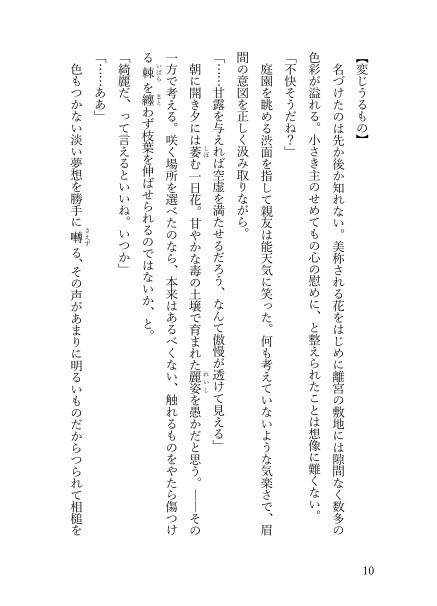 【変じうるもの】
　名づけたのは先か後か知れない。美称される花をはじめに離宮の敷地には隙間なく数多の
色彩が溢れる。小さき主のせめてもの心の慰めに、と整えられたことは想像に難くない。
「不快そうだね?」
　庭園を眺める渋面を指して親友は能天気に笑った。何も考えていないような気楽さで、眉
間の意図を正しく汲み取りながら。
「……甘露を与えれば空虚を満たせるだろう、なんて傲慢が透けて見える」
　朝に開き夕には萎む一日花。甘やかな毒の土壌で育まれた麗姿を愚かだと思う。――その
一方で考える。咲く場所を選べたのなら、本来はあるべくない、触れるものをやたら傷つけ
る棘を纏わず枝葉を伸ばせられるのではないか、と。
「綺麗だ、って言えるといいね。いつか」
「……ああ」
　色もつかない淡い夢想を勝手に囀る、その声があまりに明るいものだからつられて相槌を
しぼ
れいし
いばら
まと
さえず
10